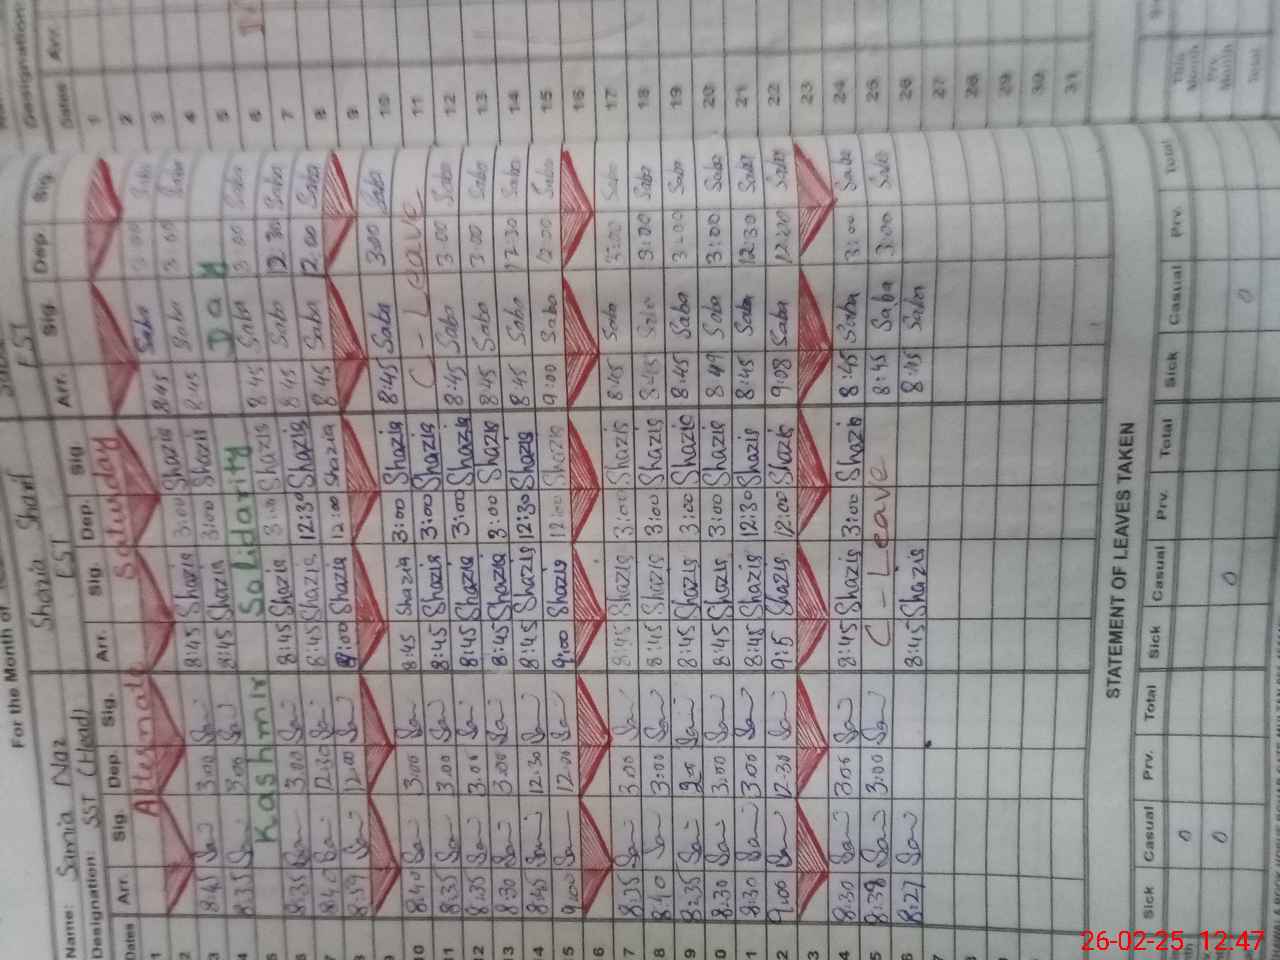 For the Month of
Name: Samia Naz Shazia Sharif
Designation: SST (Head) EST EST
Dates Arr. Sig. Dep. Sig. Arr. Sig. Dep. Sig. Arr. Sig. Dep. Sig.
1 Alternate Saturday
2
3 8:45 3:00 8:45 Shazia 3:00 Shazia 8:45 Saba 3:00 Saba
4 8:35 3:00 8:45 Shazia 3:00 Shazia 8:45 Saba 3:00 Saba
5 Kashmir Solidarity Day
6 8:35 3:00 8:45 Shazia 3:00 Shazia 8:45 Saba 3:00 Saba
7 8:40 12:30 8:45 Shazia 12:30 Shazia 8:45 Saba 12:30 Saba
8 12:00 9:00 Shazia 12:00 Shazia 8:45 Saba 12:00 Saba
9
10 8:40 3:00 8:45 Shazia 3:00 Shazia 8:45 Saba 3:00 Saba
11 8:35 3:00 8:45 Shazia 3:00 Shazia C - Leave
12 8:35 3:00 8:45 Shazia 3:00 Shazia 8:45 Saba 3:00 Saba
13 8:30 3:00 8:45 Shazia 3:00 Shazia 8:45 Saba 3:00 Saba
14 8:45 12:30 8:45 Shazia 12:30 Shazia 8:45 Saba 12:30 Saba
15 9:00 12:00 9:00 Shazia 12:00 Shazia 9:00 Saba 12:00 Saba
16
17 8:35 3:00 8:45 Shazia 3:00 Shazia 8:45 Saba 3:00 Saba
18 8:40 3:00 8:45 Shazia 3:00 Shazia 8:45 Saba 3:00 Saba
19 8:35 8:45 Shazia 3:00 Shazia 8:45 Saba 3:00 Saba
20 8:30 3:00 8:45 Shazia 3:00 Shazia 8:49 Saba 3:00 Saba
21 8:30 3:00 8:45 Shazia 12:30 Shazia 8:45 Saba 12:30 Saba
22 9:00 12:30 9:5 Shazia 12:00 Shazia 9:08 Saba 12:20 Saba
23
24 8:30 3:00 8:45 Shazia 3:00 Shazia 8:45 Saba 3:00 Saba
25 8:38 3:00 C - Leave 8:45 Saba 3:00 Saba
26 8:27 8:45 Shazia 8:45 Saba
STATEMENT OF LEAVES TAKEN
Sick Casual Prv. Total Sick Casual Prv. Total Sick Casual Prv. Total
0
0 0
0
Designation
Dates Arr.
1
2
3
4
5
6
7
8
9
10
11
12
13
14
15
16
17
18
19
20
21
22
23
24
25
26
27
28
29
30
31
This Month
Prv. Month
Total
26-02-25 12:47